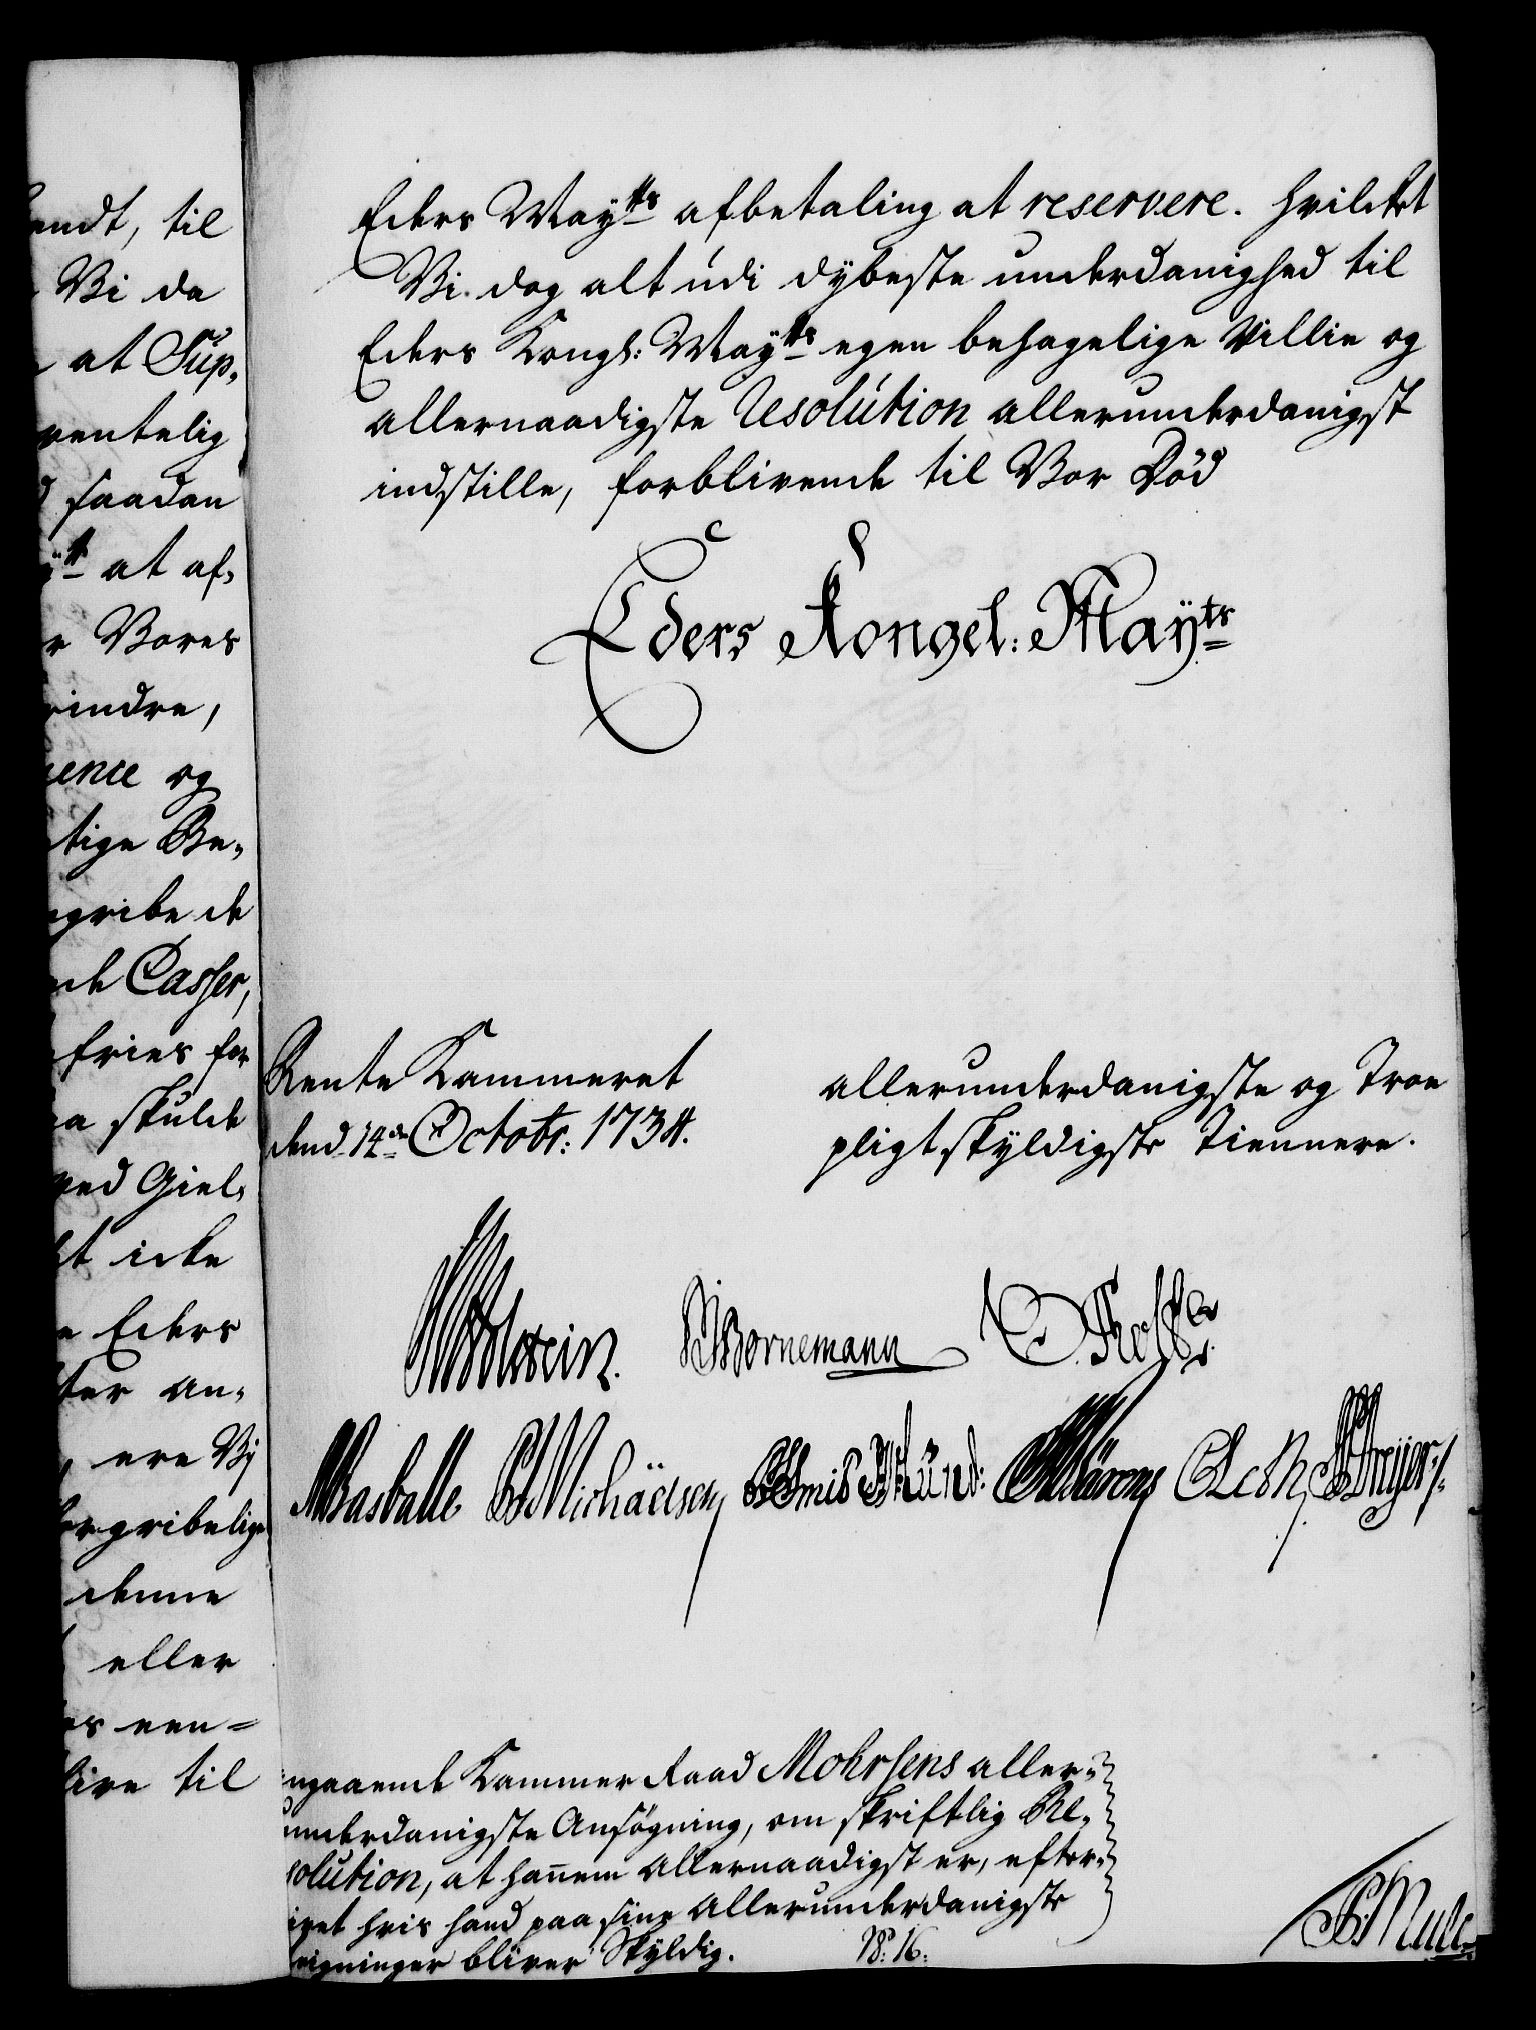 endt, til
Vi da
at Sup,
ventelig
saadan
ÿtt at af,
Vores
indre,
ence og
tige Be,
gribe de
de Casser,
fries for
a skulde
ved Giel,
t icke
Eders
ter an,
ere Vj
gribelige
denne
eller
es een=
live til
Eders Maÿtts afbetaling at reservere. hvilcket
Vi dog alt udi dÿbeste underdanighed til
Eders Kongl: Maÿtts egen behagelige Villie og
allernaadigste Resolution allerunderdanigst
indstille, forblivende til Vor Død
Eders Kongel: Maÿts
Rente Kammeret
dend 14de Octobr: 1734.
allerunderdanigste og Troe
pligtskÿldigste Tiennere.
Holstein. Bornemann
Basballe Michäelsen Leth Dreÿer
ngaaende Kammer Raad Mohrsens aller,
underdanigste Ansøgning, om skriftlig Re,
solution, at hannem Allernaadigst er, efter,
ivet hvis hand paa sine Allerunderdanigste
egninger bliver Skÿldig. No: 16.
Mule